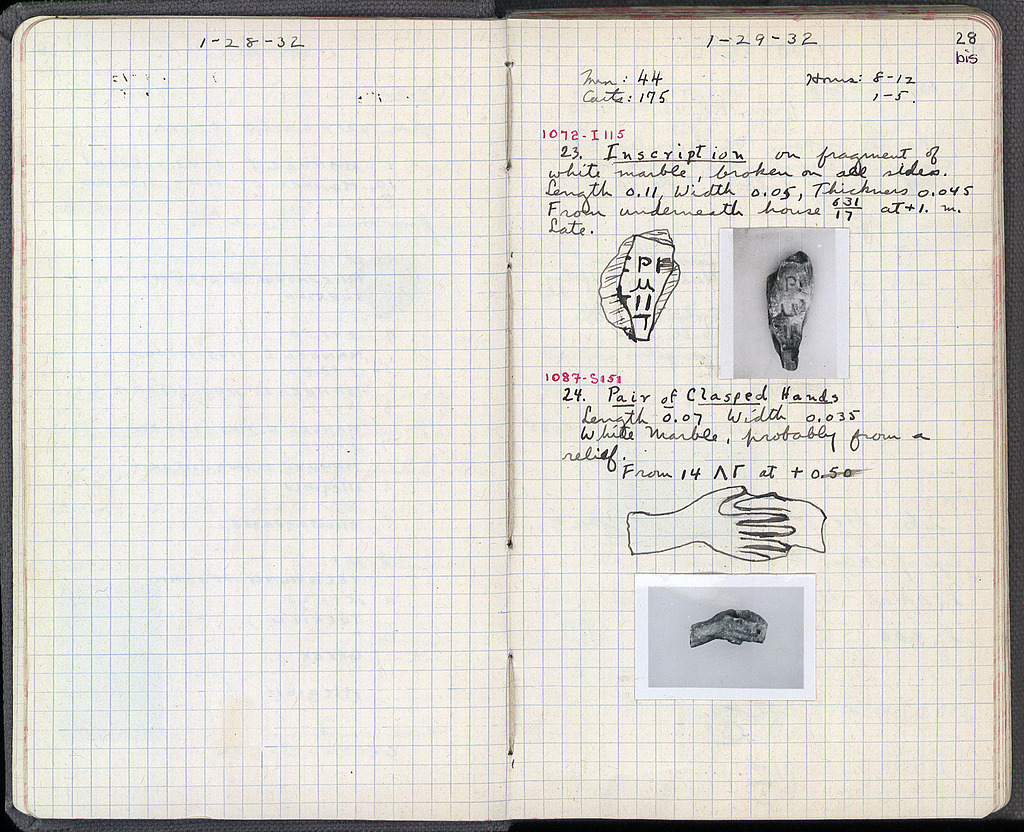 1-28-32
1-29-32
28
bis
Men: 44 Hours: 8-12
Carts: 175 1-5.
1072-I 115
23. Inscription on fragment of
white marble, broken on all sides.
Length 0.11, Width 0.05, Thickness 0.045
From underneath house 631/17 at +1. m.
Late.
ΡΙ
μ
ΙΙ
Τ
1087-S151
24. Pair of Clasped Hands
Length 0.07 Width 0.035
White Marble, probably from a
relief.
From 14 ΛΓ at + 0.50